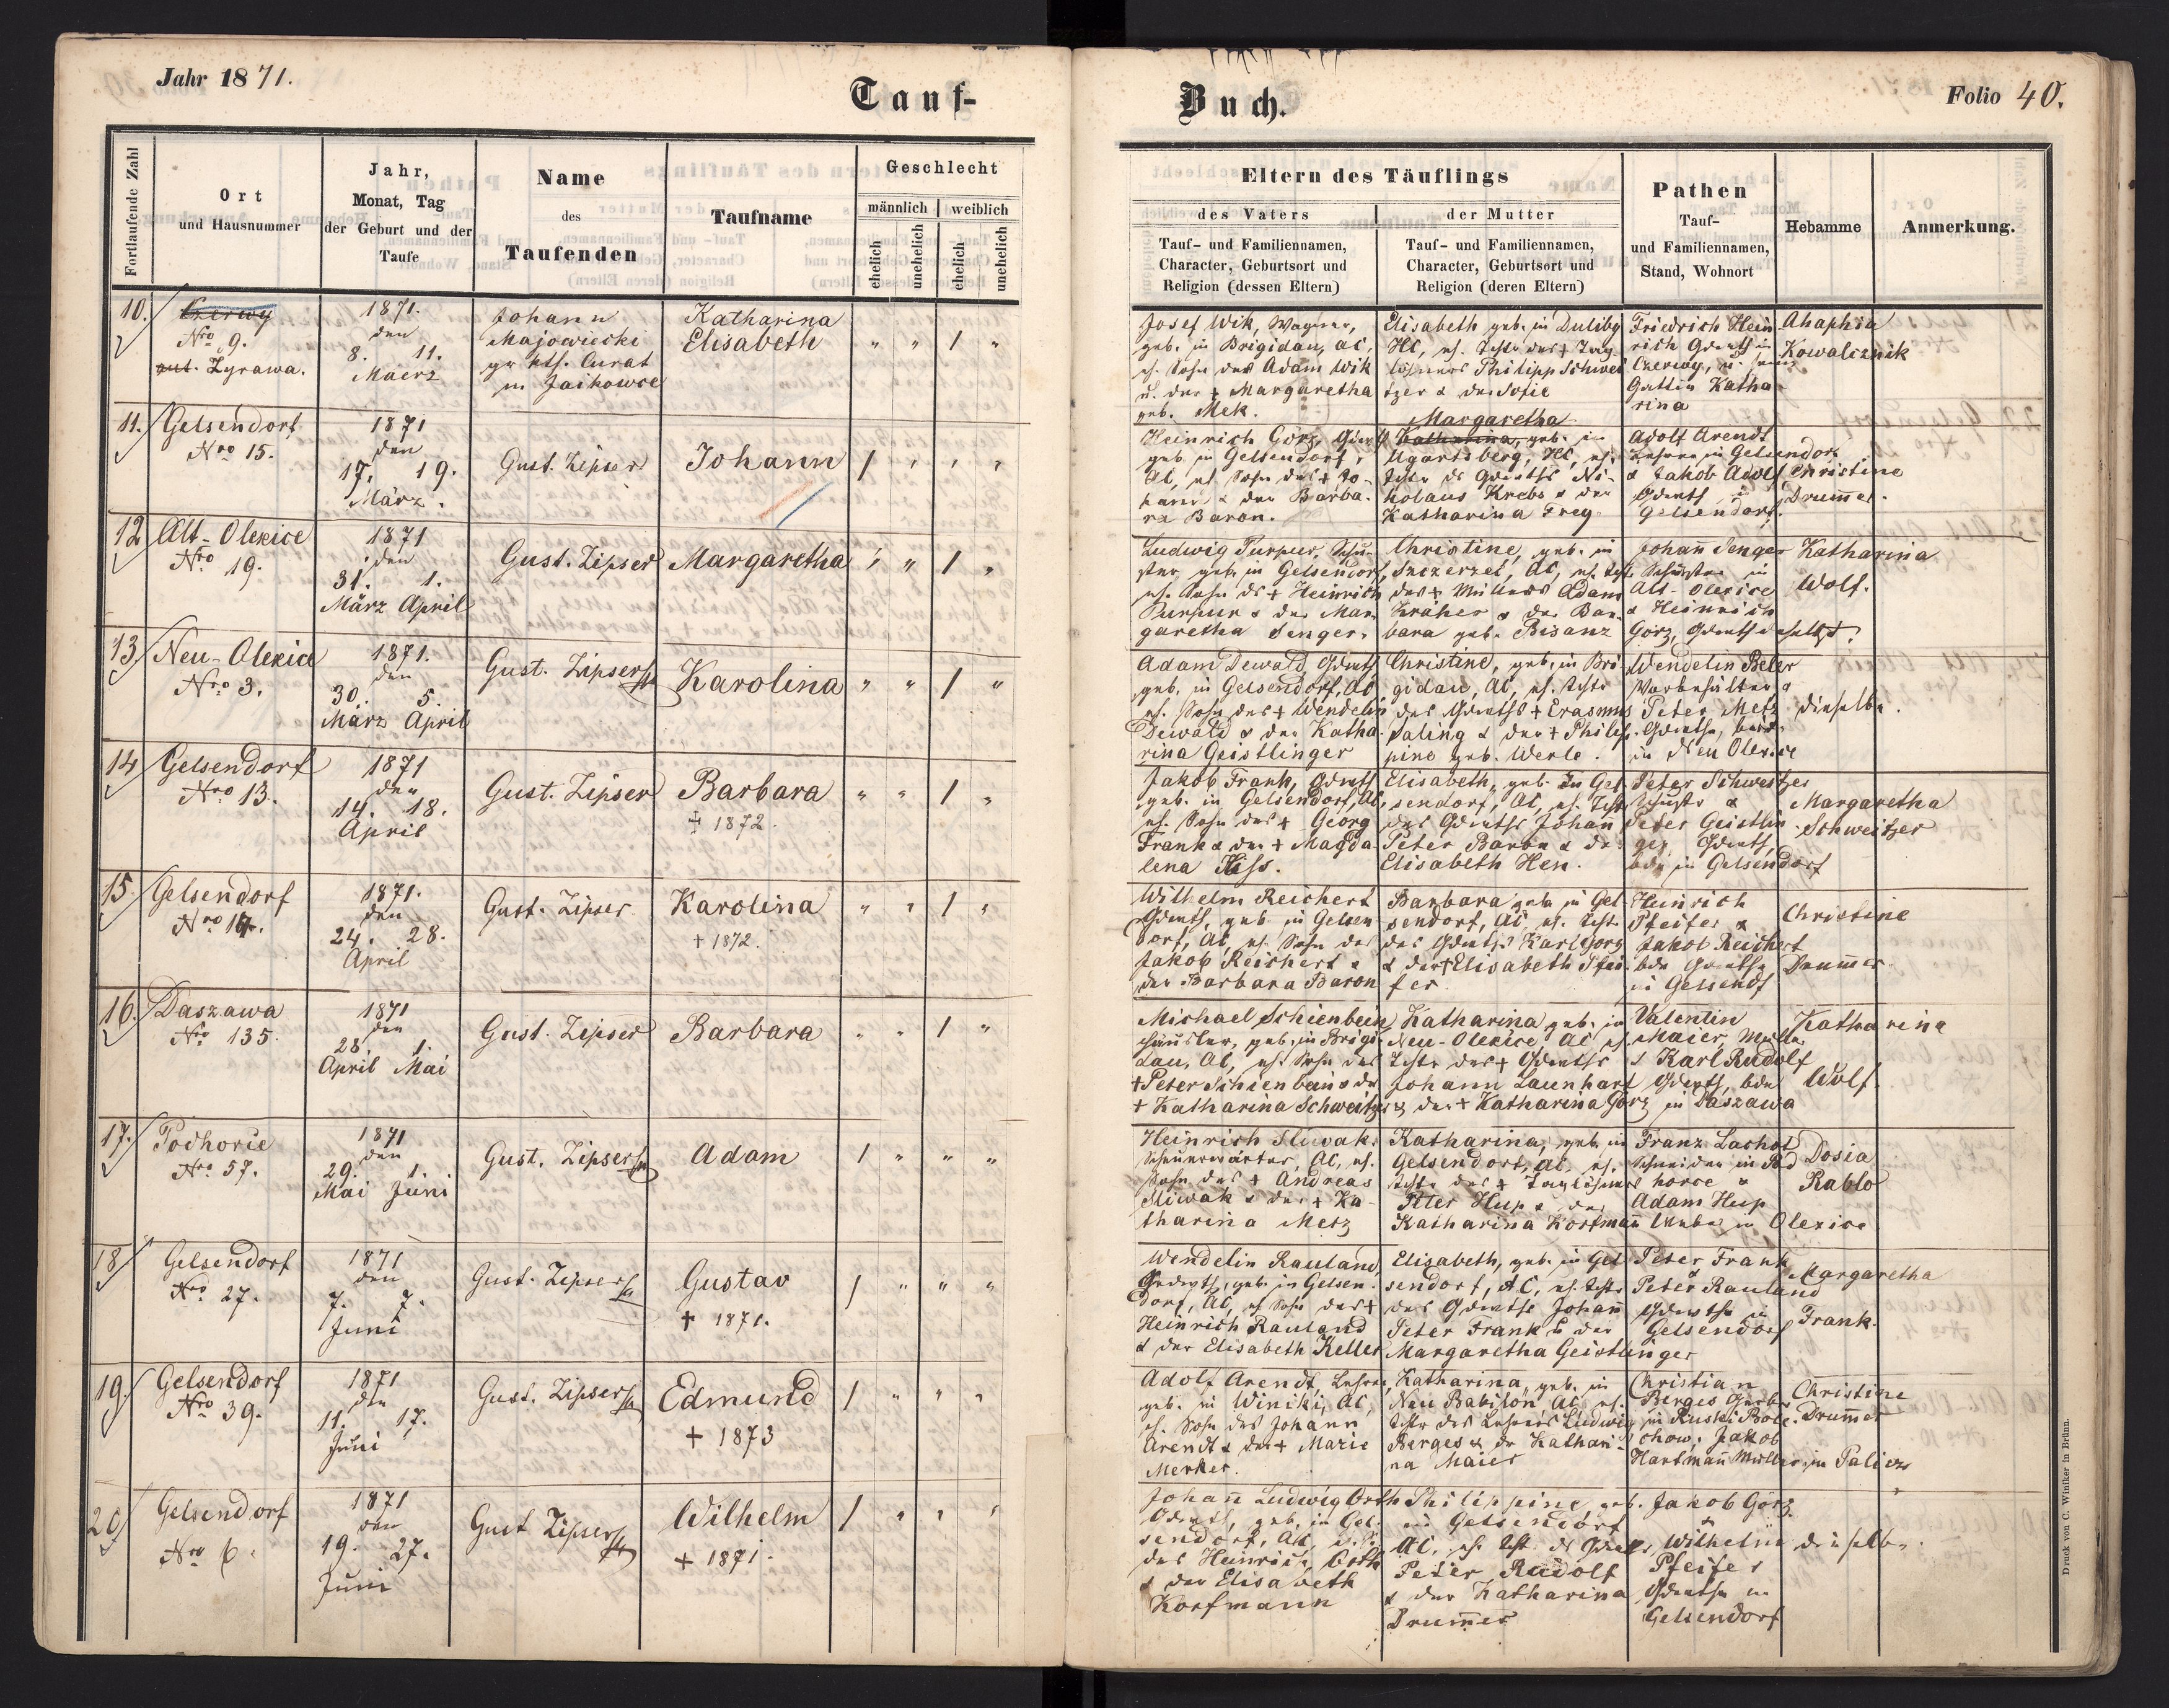 Jahr 1871.
Tauf-
Buch.
Folio 40.
Fortlaufende Zahl
Ort
und Hausnummer
Jahr,
Monat, Tag
der Geburt und der
Taufe
Name
des
Taufenden
Taufname
Geschlecht
männlich
weiblich
ehelich
unehelich
ehelich
unehelich
Eltern des Täuflings
des Vaters
Tauf- und Familiennamen,
Character, Geburtsort und
Religion (dessen Eltern)
der Mutter
Tauf- und Familiennamen,
Character, Geburtsort und
Religion (deren Eltern)
Pathen
Tauf-
und Familiennamen,
Stand, Wohnort
Hebamme
Anmerkung.
10.
Nro 9.
Zyrawa.
1871.
den
8. 11.
Maerz
Johann
Majowiecki
gr ktl. Curat
in Jaikowce
Katharina
Elisabeth
" " 1 "
Josef Wik, Wagner,
geb. in Brigidau, AC,
eh. Sohn des Adam Wik
u. der + Margaretha
geb. Mek.
Elisabeth geb. in Duliby
HC, eh. Tchtr des + Tag
löhners Philipp Schwei
tzer & der Sofie
Friedrich Hein
rich Grdwth in
Czerwy, u. seine
Gattin Katha
rina
Ahaphia
Kowalcznik
11.
Gelsendorf
Nro 15.
1871
den
17. 19.
März.
Gust. Zipser
Johann
1 " " "
Heinrich Görz, Gdwth
geb. in Gelsendorf,
AC, eh. Sohn des + Jo-
hann & der Barba-
ra Baron.
Margaretha
Katharina, geb. in
Ugartsberg, HC, eh.
Tchtr ds Grdwths Ni-
kolaus Krebs & der
Katharina Frey
Adolf Arendt
Lehrer in Gelsendorf
& Jakob Adolf
Gdwth in
Gelsendorf.
Christine
Drum̄er.
12
Alt-Olexice
Nro 19.
1871
den
31. 1.
März April
Gust. Zipser
Margaretha
" " 1 "
Ludwig Purpur, Schu-
ster geb. in Gelsendorf,
eh. Sohn ds + Heinrich
Purpur & der Mar
garetha Senger.
Christine, geb. in
Szczerzec, AC, eh. Tcht
des + Müllers Adam
Kräher & der Bar-
bara geb. Bisanz
Johan̄ Senger
Schuster in
Alt-Olexice
& Heinrich
Görz, Gdwth daselbst.
Katharina
Wolf.
13
Neu-Olexice
Nro 3.
1871.
den
30. 5.
März April
Gust. Zipser
Karolina
" " 1 "
Adam Dewald, Gdwth
geb. in Gelsendorf, AC
eh. Sohn des + Wendelin
Dewald & der Katha-
rina Geistlinger
Christine, geb. in Bri-
gidau, AC, eh. Tchtr
des Gdwths + Erasmus
Paling & der + Philip-
pine geb. Werle.
Wendelin Beler
Peter Metz
Gdwthe, beide
in Neu Olexice
dieselbe.
14
Gelsendorf
Nro 13.
1871
den
14. 18.
April
Gust. Zipser
Barbara
+ 1872.
" " 1 "
Jakob Frank, Gdwth
geb. in Gelsendorf, AC,
eh. Sohn des + Georg
Frank & der + Magda-
lena Hiss.
Elisabeth, geb. in Gel
sendorf, AC, eh. Tcht
des Gdwths Johan̄
Peter Baron & der
Elisabeth Hen.
Peter Schweitzer
Schustr &
Peter Geistlin
ger Gdwth,
bde in Gelsendorf
Margaretha
Schweitzer
15
Gelsendorf
Nro 14.
1871.
den
24. 28.
April
Gust. Zipser
Karolina
+ 1872.
" " 1 "
Wilhelm Reichert
Gdwth, geb. in Gelsen
dorf, AC, eh. Sohn des
Jakob Reichert &
der Barbara Baron
Barbara geb. in Gel
sendorf, AC, eh. Tcht
des Gdwths Karl Görz
& der + Elisabeth Pfei-
fer
Heinrich
Pfeifer &
Jakob Reichert
bde Gdwthe
in Gelsendf
Christine
Drum̄er
16.
Daszawa
Nro 135.
1871
den
28. 1.
April Mai
Gust. Zipser
Barbara
" " 1 "
Michael Schienbein
Häusler, geb. in Brigi-
dau, AC, eh. Sohn des
+ Peter Schienbein & der
+ Katharina Schweitzer
Katharina geb. in
Neu-Olexice, AC eh.
Tchtr des + Gdwths
Johann Launhart
& der + Katharina Görz
Valentin
Maier, Müller
& Karl Rudolf
Gdwth, bde
in Daszawa
Katharina
Wolf.
17.
Podhorce
Nro 57.
1871
den
29. 1.
Mai Juni
Gust. Zipser
Adam
1 " " "
Heinrich Sliwak.
Scheuerwärter, AC, eh.
Sohn des + Andreas
Sliwak & der + Ka-
tharina Merz
Katharina, geb. in
Gelsendorf, AC, eh.
Tchtr des + Taglöhners
Peter Hup & der
Katharina Korfman̄
Franz Lachot
Schneider in Pod
horce &
Adam Hup
Weber in Olexice
Dosia
Rablo
18
Gelsendorf
Nro 27.
1871
den
7. 7.
Juni
Gust. Zipser
Gustav
+ 1871.
1 " " "
Wendelin Rauland
Grdwth, geb. in Gelsen-
dorf, AC, eh. Sohn des +
Heinrich Rauland
& der Elisabeth Keller
Elisabeth, geb. in Gel
sendorf, AC, eh. Tchtr
des Gdwths Johan̄
Peter Frank & der
Margaretha Geistlinger
Peter Frank
&
Peter Rauland
Gdwthe in
Gelsendorf
Margaretha
Frank.
19.
Gelsendorf
Nro 39.
1871
den
11. 17.
Juni
Gust. Zipser
Edmund
+ 1873
1 " " "
Adolf Arendt, Lehrer,
geb. in Winiki, AC,
eh. Sohn des Johann
Arendt & der + Marie
Merker.
Katharina, geb. in
Neu Babilon, AC, eh.
Tchtr des Lehrers Ludwig
Berges & der Kathari-
na Maier
Christian
Berges Gerber
in Ruski Bole-
chow, Jakob
Hartman̄ Müller in Paliczo
Christine
Drum̄er
20
Gelsendorf
Nro 6.
1871
den
19. 27.
Juni
Gust. Zipser
Wilhelm
+ 1871.
1 " " "
Johan̄ Ludwig Orth
Gdwth, geb. in Gel-
sendorf, AC, eh. S.
des Heinrich Orth
& der Elisabeth
Korfmann
Philippine geb.
in Gelsendorf
AC, eh. Tcht. ds Gdwths
Peter Rudolf
& der Katharina
Drum̄er
Jakob Görz
&
Wilhelm
Pfeifer
Gdwthe in
Gelsendorf
dieselbe.
Druck von C. Winiker in Brünn.